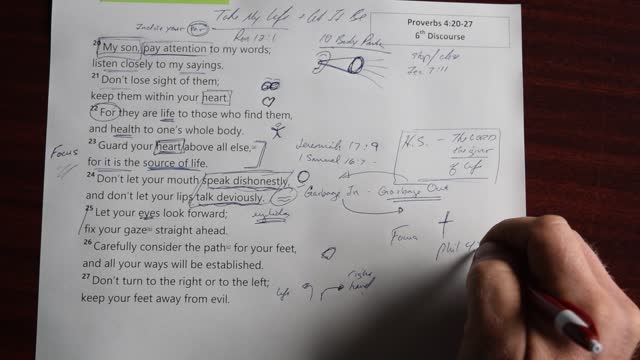 Take My Life & Let It Be
Incline your ear
Rom 12:1
Proverbs 4:20-27
6th Discourse
20 My son, pay attention to my words;
listen closely to my sayings.
10 Body Parts
21 Don't lose sight of them;
keep them within your heart.
22 For they are life to those who find them,
and health to one's whole body.
23 Guard your heart above all else,
for it is the source of life.
Focus
Jeremiah 17:9
1 Samuel 16:7
H.S. - The LORD
the giver
of life
24 Don't let your mouth speak dishonestly,
and don't let your lips talk deviously.
Garbage In - Garbage Out
25 Let your eyes look forward;
fix your gaze straight ahead.
Focus
Phil 4
26 Carefully consider the path for your feet,
and all your ways will be established.
27 Don't turn to the right or to the left;
keep your feet away from evil.
left
right
hand